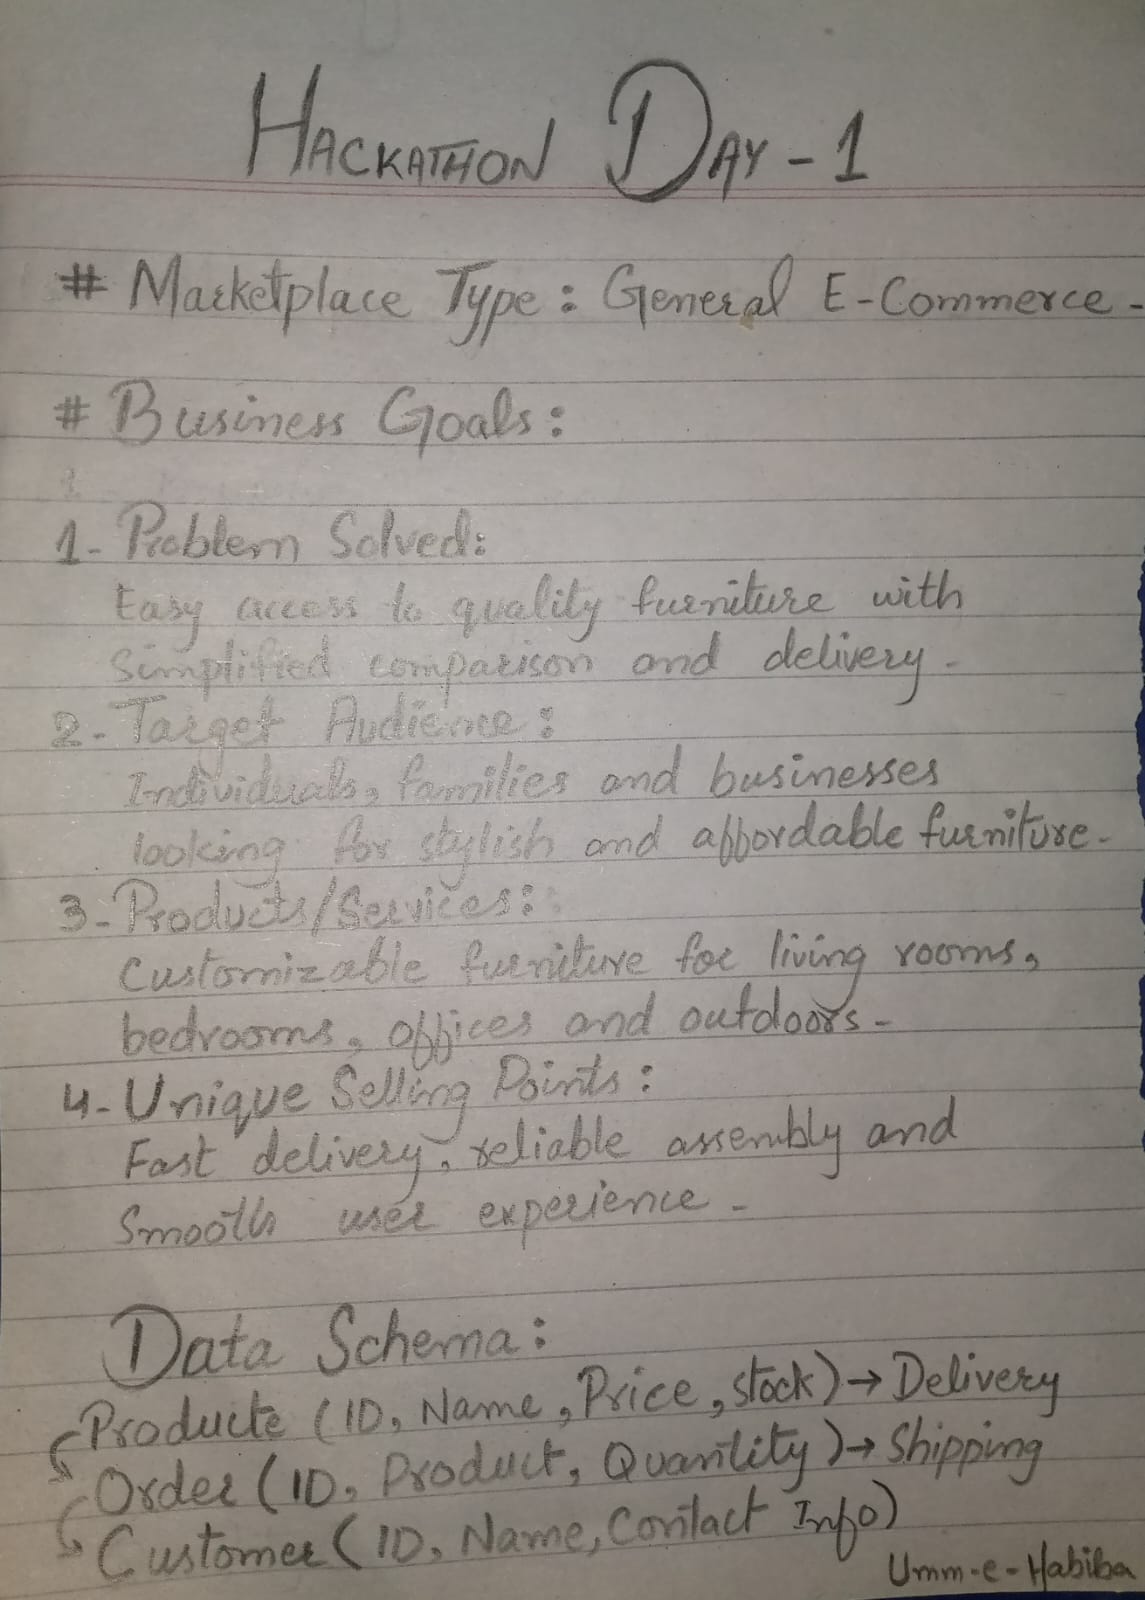 HACKATHON DAY - 1
# Marketplace Type : General E-Commerce -
# Business Goals :
1- Problem Solved:
Easy access to quality furniture with
Simplified comparison and delivery -
2- Target Audience :
Individuals, families and businesses
looking for stylish and affordable furniture -
3- Products/Services :
Customizable furniture for living rooms,
bedrooms, offices and outdoors -
4- Unique Selling Points :
Fast delivery, reliable assembly and
Smooth user experience -
Data Schema :
Producte (ID, Name, Price, stock) → Delivery
Order (ID, Product, Quantity) → Shipping
Customer (ID, Name, Contact Info)
Umm-e-Habiba